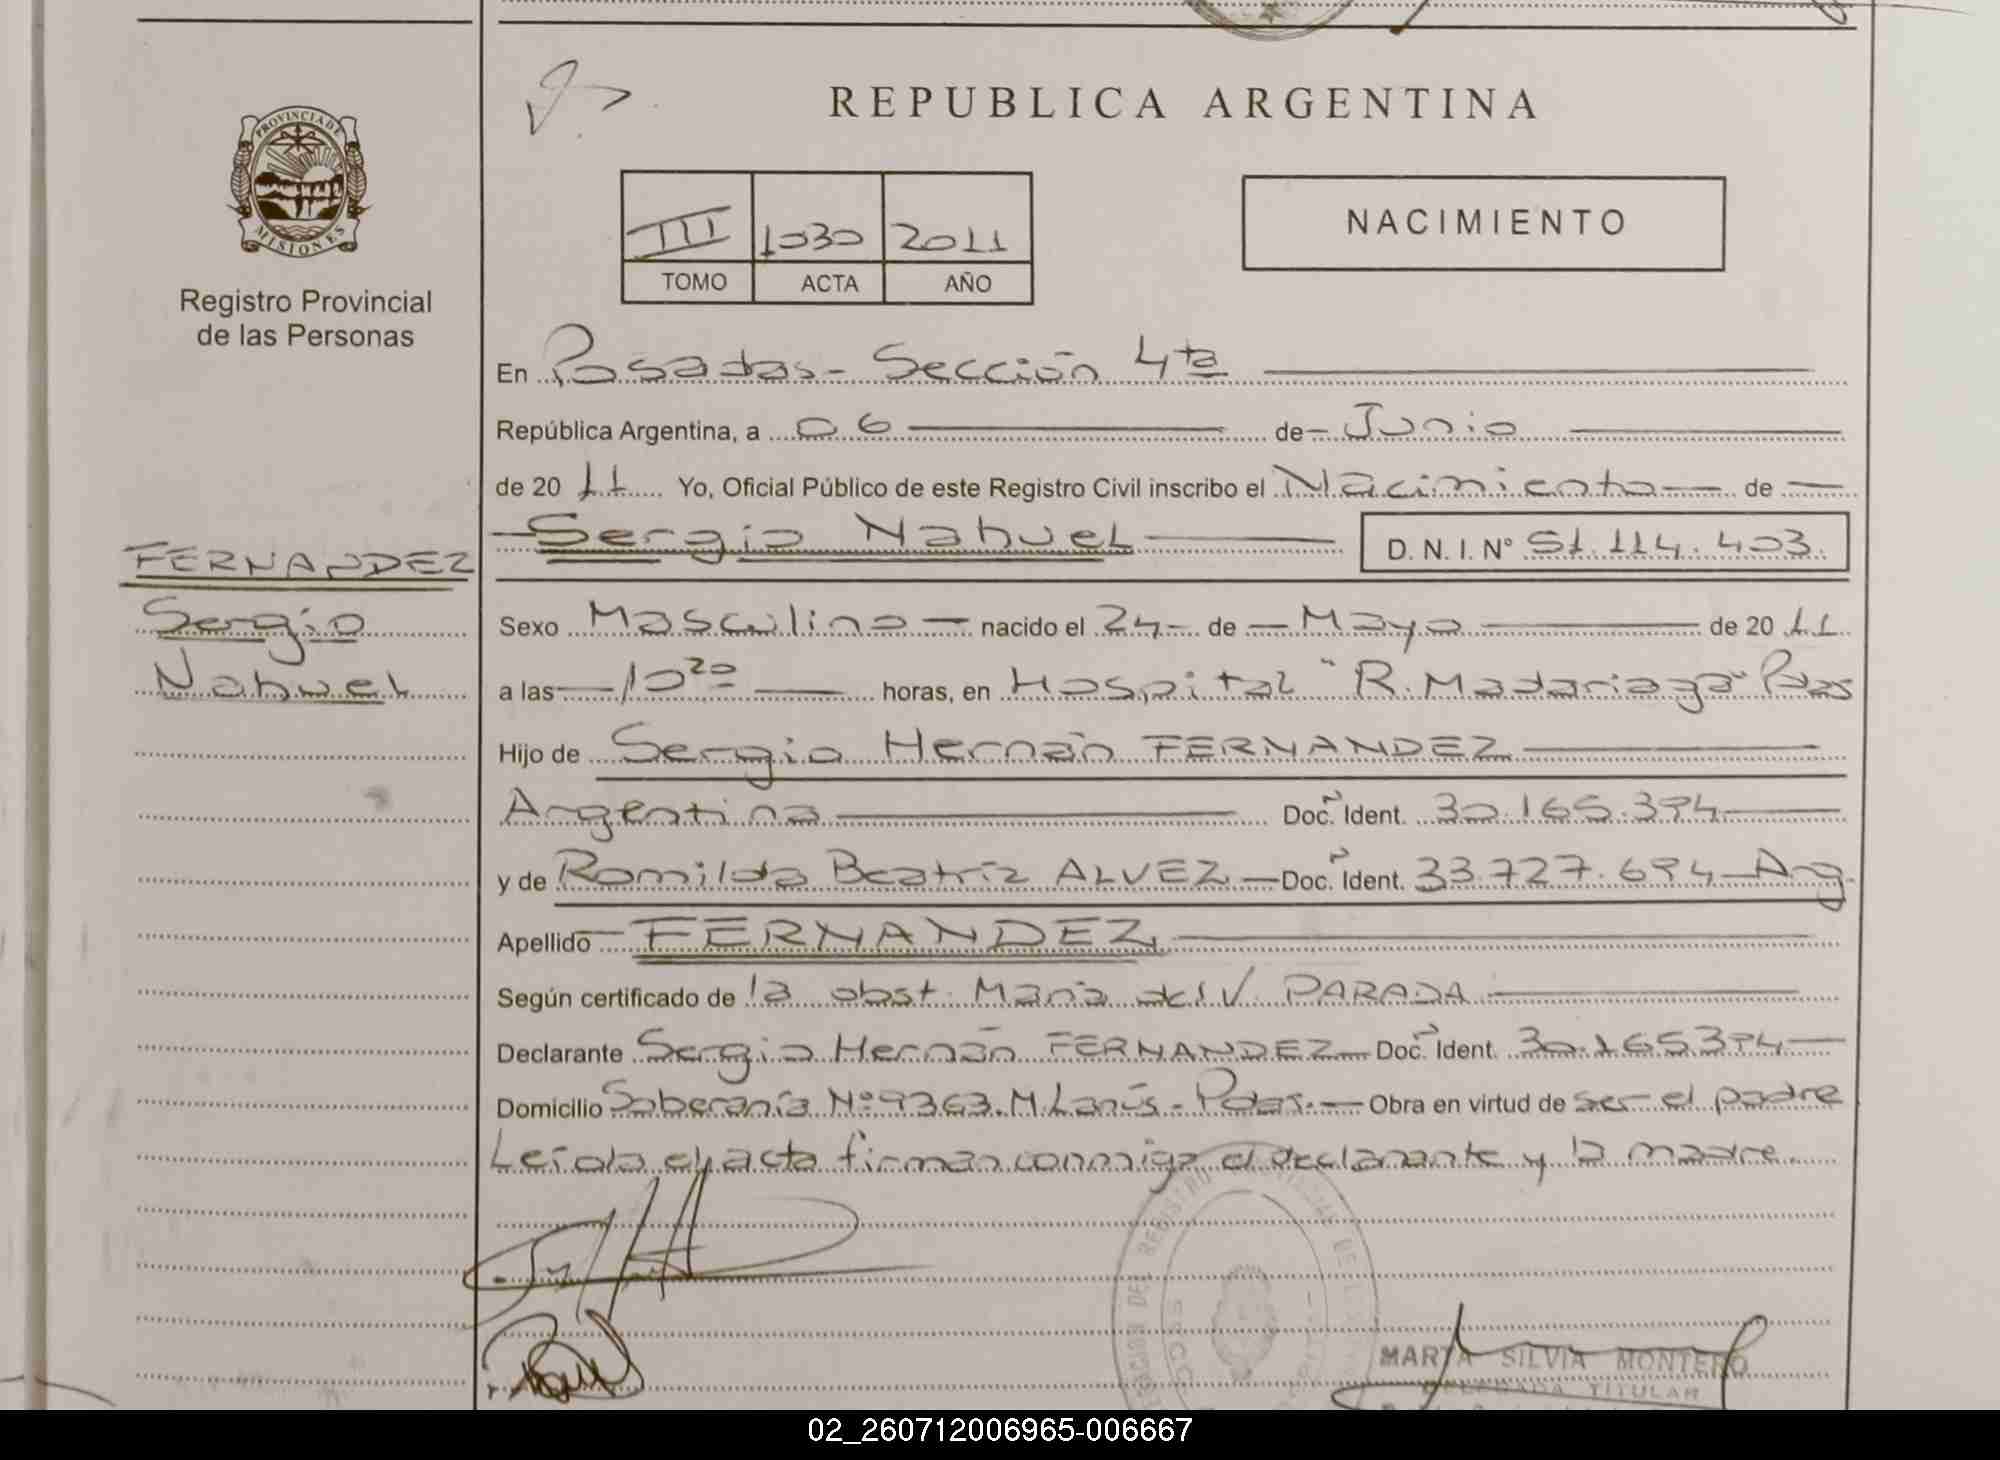 REPUBLICA ARGENTINA
PROVINCIA DE
MISIONES
Registro Provincial
de las Personas
III 1030 2011
TOMO ACTA AÑO
NACIMIENTO
En Posadas - Sección 4ta
República Argentina, a 06 de Junio
de 20 11 Yo, Oficial Público de este Registro Civil inscribo el Nacimiento de
Sergio Nahuel D. N. I. N° 51.114.403
FERNANDEZ
Sergio
Nahuel
Sexo Masculino nacido el 24 de Mayo de 20 11
a las 10 20 horas, en Hospital "R. Madariaga" Pdas
Hijo de Sergio Hernán FERNANDEZ
Argentina Doc. Ident. 30.165.394
y de Romilda Beatríz ALVEZ Doc. Ident. 33.727.694 Arg.
Apellido FERNANDEZ
Según certificado de la obst. María del V. PARADA
Declarante Sergio Hernán FERNANDEZ Doc. Ident. 30.165394
Domicilio Soberanía Nº 9363. M. Lanús - Pdas. Obra en virtud de ser el padre
Leída el acta firman conmigo el declarante y la madre.
MARTA SILVIA MONTERO
DELEGADA TITULAR
02_260712006965-006667